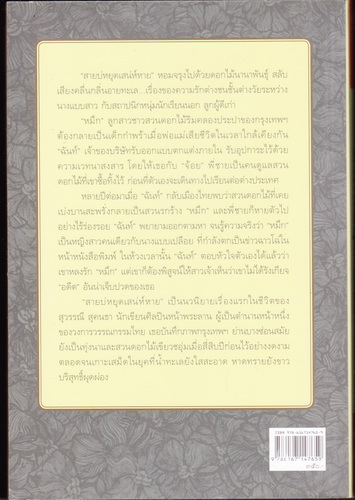 "สายบ่หยุดเสน่ห์หาย" หอมจรุงไปด้วยดอกไม้นานาพันธุ์ สลับ
เสียงคลื่นกลิ่นอายทะเล...เรื่องของความรักต่างชนชั้นต่างวัยระหว่าง
นางแบบสาว กับสถาปนิกหนุ่มนักเรียนนอก ลูกผู้ดีเก่า
"หมึก" ลูกสาวชาวสวนดอกไม้ริมคลองประปาของกรุงเทพฯ
ต้องกลายเป็นเด็กกำพร้าเมื่อพ่อแม่เสียชีวิตในเวลาใกล้เคียงกัน
"ฉันท์" เจ้าของบริษัทรับออกแบบตกแต่งภายใน รับอุปการะไว้ด้วย
ความเวทนาสงสาร โดยให้เธอกับ "จ้อย" พี่ชายเป็นคนดูแลสวน
ดอกไม้ที่เขาซื้อทิ้งไว้ ก่อนที่ตัวเองจะเดินทางไปเรียนต่อต่างประเทศ
หลายปีต่อมาเมื่อ "ฉันท์" กลับเมืองไทยพบว่าสวนดอกไม้ที่เคย
เบ่งบานสะพรั่งกลายเป็นสวนรกร้าง "หมึก" และพี่ชายก็หายตัวไป
อย่างไร้ร่องรอย "ฉันท์" พยายามออกตามหา จนรู้ความจริงว่า "หมึก"
เป็นหญิงสาวคนเดียวกับนางแบบเปลือย ที่กำลังตกเป็นข่าวฉาวโฉ่ใน
หน้าหนังสือพิมพ์ ในห้วงเวลานั้น "ฉันท์" ตอบหัวใจตัวเองได้แล้วว่า
เขาหลงรัก "หมึก" แต่เขาก็ต้องพิสูจน์ให้สาวเจ้าเห็นว่าเขาไม่ได้รังเกียจ
"อดีต" อันน่าเจ็บปวดของเธอ
"สายบ่หยุดเสน่ห์หาย" เป็นนวนิยายเรื่องแรกในชีวิตของ
สุวรรณี สุคนธา นักเขียนศิลปินหน้าพระลาน ผู้เป็นตำนานหน้าหนึ่ง
ของวงการวรรณกรรมไทย เธอบันทึกภาพกรุงเทพฯ ย่านบางซ่อนสมัย
ยังเป็นทุ่งนาและสวนดอกไม้เขียวชอุ่มเมื่อสี่สิบปีก่อนไว้อย่างงดงาม
ตลอดจนเกาะเสม็ดในยุคที่น้ำทะเลยังใสสะอาด หาดทรายยังขาว
บริสุทธิ์ผุดผ่อง